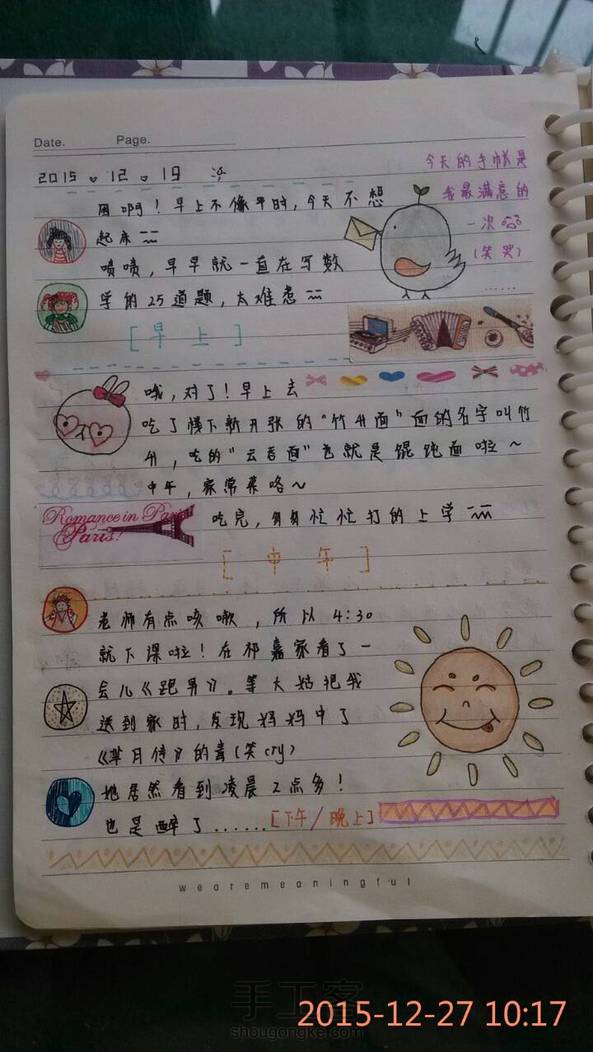 Date. Page.
2015.12.19
今天的手帐是
我最满意的
一次哈
(笑哭)
......
困啊!早上不像平时,今天不想
起床
啧啧,早早就一直在写数
学的25道题,太难惹
[早上]
哦,对了!早上去
吃了楼下新开张的"竹升面"面的名字叫竹
升,吃的"云吞面"也就是馄饨面啦~
中午,家常菜咯~
Romance in Paris
Paris!
吃完,匆匆忙忙打的上学
[中午]
老师有点咳嗽,所以4:30
就下课啦!在祁嘉家看了一
会儿《跑男》。等大姑把我
送到家时,发现妈妈中了
《芈月传》的毒(笑cry)
她居然看到凌晨2点多!
也是醉了......[下午/晚上]
wearemeaningful
手工客
shougongke.com
2015-12-27 10:17